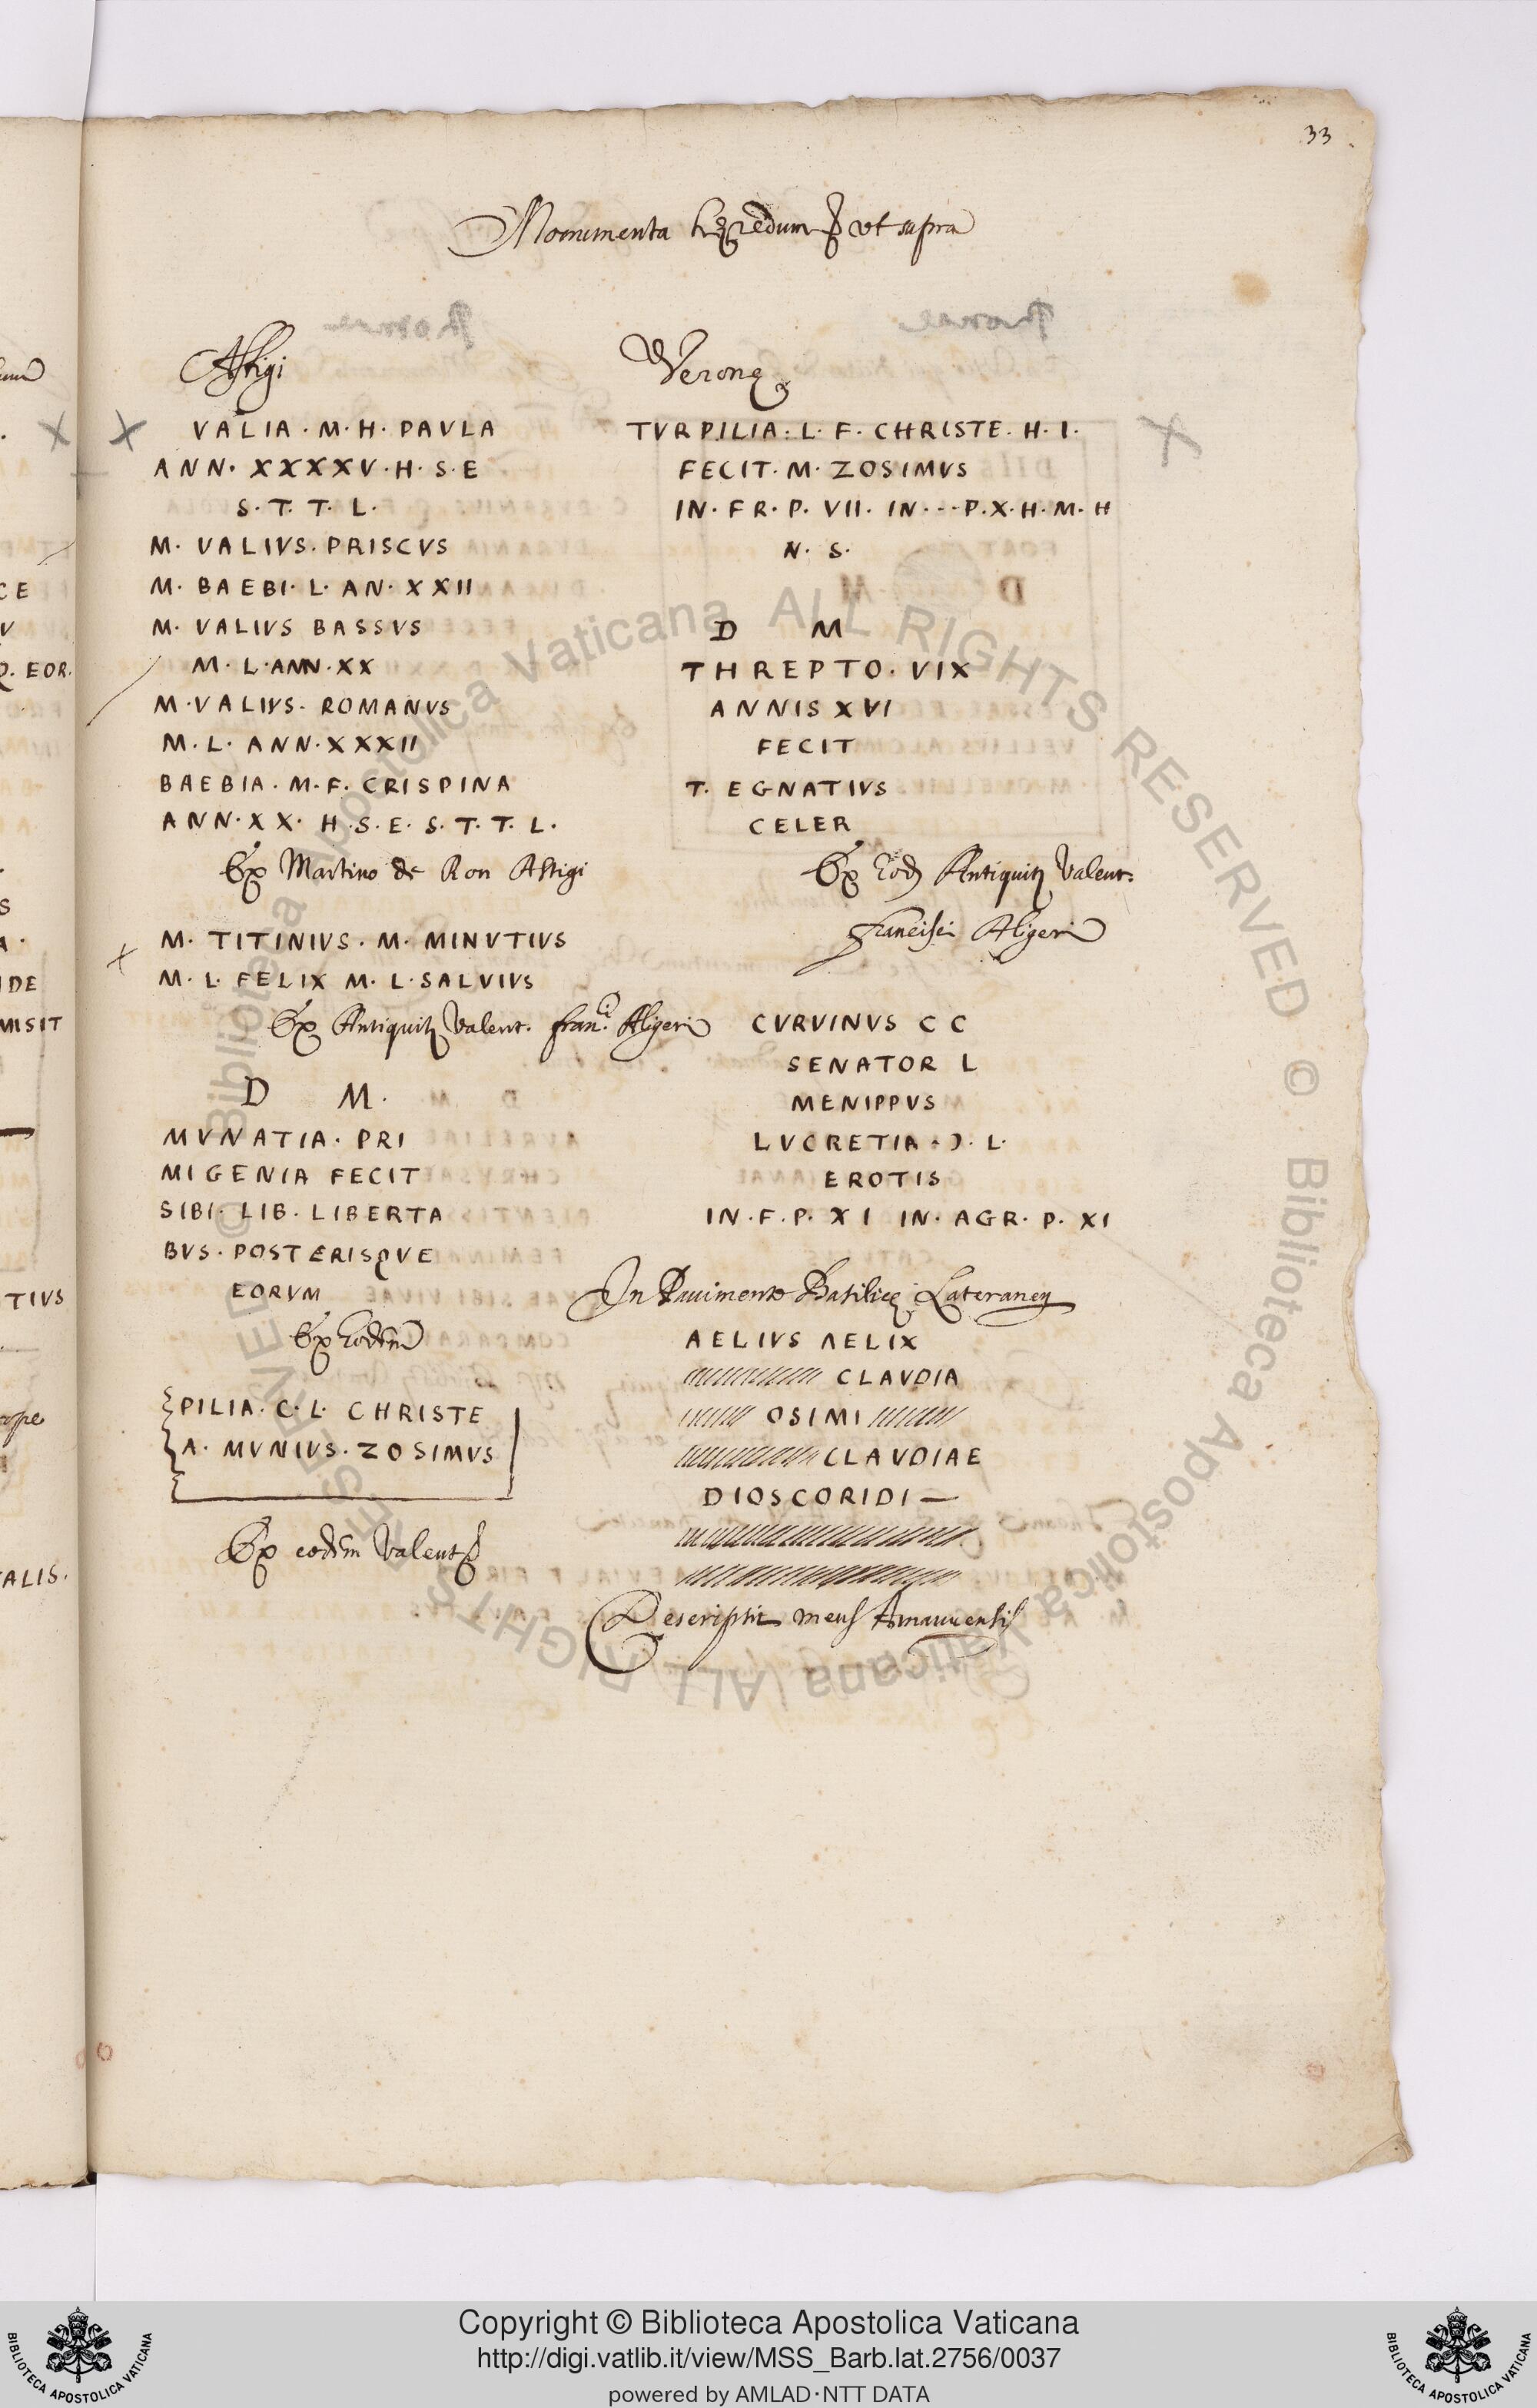 33
Monumenta hęredum ut supra
Astigi
VALIA · M · H · PAVLA
ANN · XXXXV · H · S · E
S · T · T · L ·
M · VALIVS · PRISCVS
M · BAEBI · L · AN · XXII
M · VALIVS BASSVS
M · L · ANN · XX
M · VALIVS · ROMANVS
M · L · ANN · XXXII
BAEBIA · M · F · CRISPINA
ANN · XX · H · S · E · S · T · T · L ·
Ex Martino de Ron Astigi
M · TITINIVS · M · MINVTIVS
M · L · FELIX M · L · SALVIVS
Ex Antiquit Valent. Fran.ci Aligeri
D M ·
MVNATIA · PRI
MIGENIA FECIT
SIBI · LIB · LIBERTA
BVS · POSTERISQVE
EORVM
Ex Eodem
PILIA · C · L · CHRISTE
A · MVNIVS · ZOSIMVS
Ex eodem Valent
Veronę
TVRPILIA · L · F · CHRISTE · H · I ·
FECIT · M · ZOSIMVS
IN · FR · P · VII · IN · · · P · X · H · M · H
N · S ·
D M
THREPTO · VIX
ANNIS XVI
FECIT
T · EGNATIVS
CELER
Ex Eod Antiquit Valent.
Francisci Aligeri
CVRVINVS C C
SENATOR L
MENIPPVS
LVCRETIA · Ɔ · L ·
EROTIS
IN · F · P · XI IN · AGR · P · XI
In Pavimento Basilicę Lateraneń
AELIVS ΛELIX
CLAVDIA
OSIMI
CLAVDIAE
DIOSCORIDI —
Descripsit meus Amanuensis
Copyright © Biblioteca Apostolica Vaticana
http://digi.vatlib.it/view/MSS_Barb.lat.2756/0037
powered by AMLAD·NTT DATA
BIBLIOTECA APOSTOLICA VATICANA
BIBLIOTECA APOSTOLICA VATICANA
© Biblioteca Apostolica Vaticana ALL RIGHTS RESERVED
© Biblioteca Apostolica Vaticana ALL RIGHTS RESERVED